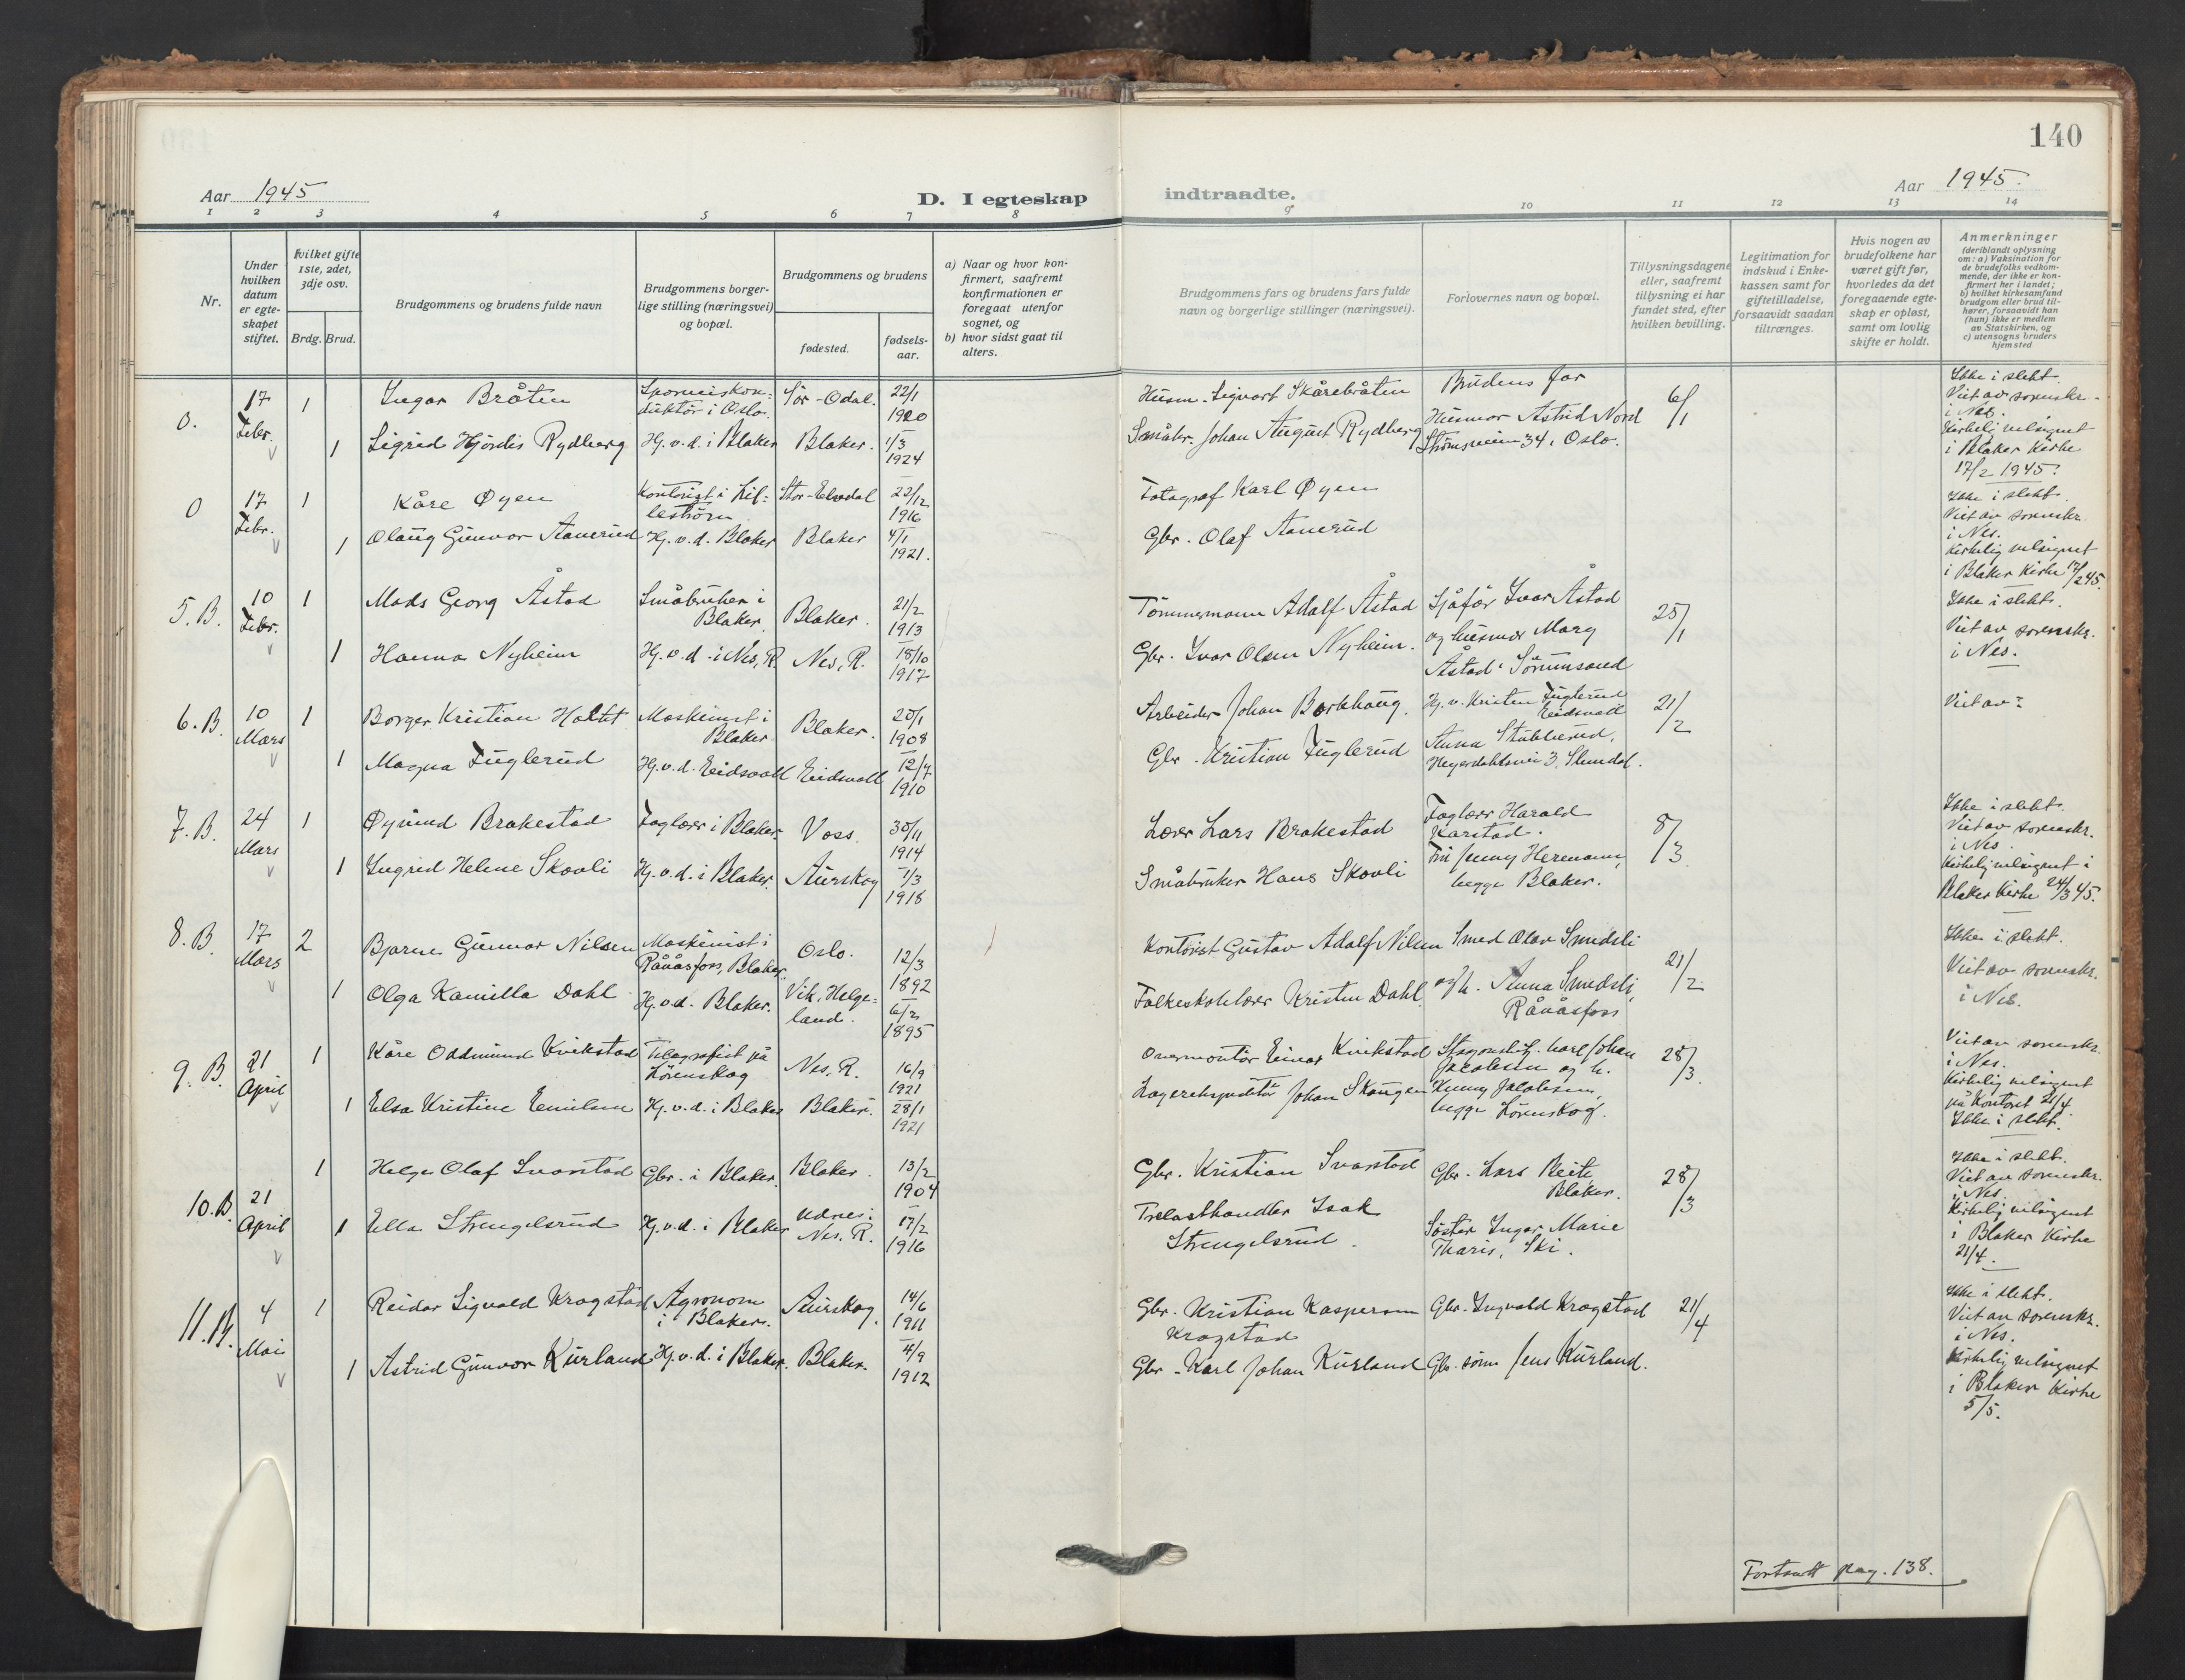 140
Aar 1945
D. I egteskap indtraadte.
Aar 1945.
1 2 3 4 5 6 7 8 9 10 11 12 13 14
Nr.
Under hvilken datum er egteskapet stiftet.
Hvilket gifte 1ste, 2det, 3dje osv.
Brdg. Brud.
Brudgommens og brudens fulde navn
Brudgommens borgerlige stilling (næringsvei) og bopæl.
Brudgommens og brudens
fødested.
fødselsaar.
a) Naar og hvor konfirmert, saafremt konfirmationen er foregaat utenfor sognet, og
b) hvor sidst gaat til alters.
Brudgommens fars og brudens fars fulde navn og borgerlige stillinger (næringsvei).
Forlovernes navn og bopæl.
Tillysningsdagene eller, saafremt tillysning ei har fundet sted, efter hvilken bevilling.
Legitimation for indskud i Enkekassen samt for giftetilladelse, forsaavidt saadan tiltrænges.
Hvis nogen av brudefolkene har været gift før, hvorledes da det foregaaende egteskap er opløst, samt om lovlig skifte er holdt.
Anmerkninger
(deriblandt oplysning om: a) Vaksination for de brudefolks vedkommende, der ikke er konfirmert her i landet;
b) hvilket kirkesamfund brudgom eller brud tilhører, forsaavidt han (hun) ikke er medlem av Statskirken, og
c) utensogns bruders hjemsted
0. 17 Febr. 1 Ingar Bråten Sporveiskonduktør i Oslo. Sør-Odal. 22/1 1920 Husm. Sigvart Skårebråten Brudens far 6/1
1 Sigrid Hjørdis Rydberg Hj.v.d. i Blaker Blaker. 1/3 1924 Småbr. Johan August Rydberg Husmor Astrid Nord 34, Oslo.
Ikke i slekt.
Viet av sorenskr.
i Nes.
Kirkelig velsignet
i Blaker Kirke
17/2 1945.
0 17 Febr. 1 Kåre Øyen Kontorist i Lillestrøm Stor-Elvdal 22/12 1916 Fotograf Karl Øyen
1 Olaug Gunvor Aanerud Hj.v.d. Blaker Blaker 4/1 1921. Gbr. Olaf Aanerud
Ikke i slekt.
Viet av sorenskr.
i Nes.
Kirkelig velsignet
i Blaker Kirke 17/2 45.
5. B. 10 Febr. 1 Mads Georg Åstad Småbruker i Blaker Blaker. 21/2 1913 Tømmermann Adolf Åstad Sjåfør Ivar Åstad 25/1
1 Hanna Nyheim Hj.v.d. i Nes, R. Nes, R. 18/10 1917 Gbr. Ivar Olsen Nyheim. og husmor Marg Åstad Sørumsand
Ikke i slekt.
Viet av sorenskr.
i Nes.
6. B. 10 Mars 1 Borger Kristian Holtet Maskinist i Blaker Blaker. 20/1 1908 Arbeider Johan Borkhaug. Hj.v. Kristen Fuglerud Eidsvoll 21/2
1 Magna Fuglerud Hj.v.d. Eidsvoll Eidsvoll 12/7 1910 Gbr. Kristian Fuglerud Anna Stubberud, Heyerdahlsvei 3, Slemdal.
Viet av
7. B. 24 Mars 1 Øyvind Brakestad Faglærer i Blaker. Voss. 30/11 1914 Lærer Lars Brakestad Faglærer Harald Karstad. 8/3
1 Ingrid Helene Skovli Hj.v.d. i Blaker. Aurskog 1/3 1918 Småbruker Hans Skovli Fru Jenny Hermann, begge Blaker.
Ikke i slekt.
Viet av sorenskr.
i Nes.
Kirkelig velsignet i
Blaker Kirke 24/3 45.
8. B. 17 Mars 2 Bjarne Gunnar Nilsen Maskinist i Rånåsfoss, Blaker. Oslo. 12/3 1892 Kontorist Gustav Adolf Nilsen Smed Olav Smedsli 21/2
1 Olga Kamilla Dahl Hj.v.d. Blaker. Vik, Helgeland. 6/2 1895 Folkeskolelærer Kristen Dahl. og h. Anna Smedsli, Rånåsfoss
Ikke i slekt.
Viet av sorenskr.
i Nes.
9. B. 21 April 1 Kåre Oddmund Kvikstad Telegrafist på Lørenskog Nes, R. 16/9 1921 Overmontør Einar Kvikstad Karl Johan Jacobsen og h. 28/3
1 Elsa Kristine Emilsen Hj.v.d. i Blaker Blaker. 28/1 1921 Lagerekspeditør Johan Skaugen Kenny Jacobsen, begge Lørenskog.
Viet av sorenskr.
i Nes.
Kirkelig velsignet
på Kontoret 21/4.
Ikke i slekt.
10. B. 21 April 1 Helge Olaf Svarstad Gbr. i Blaker. Blaker. 13/2 1904 Gbr. Kristian Svarstad Gbr. Lars Reite, Blaker. 28/3
1 Ella Strengelsrud Hj.v.d. i Blaker Udnes i Nes. R. 17/2 1916 Trelasthandler Isak Strengelsrud. Søster Ingar Marie Tharis, Ski.
Ikke i slekt.
Viet av sorenskr.
i Nes.
Kirkelig velsignet
i Blaker Kirke
21/4.
11. B. 4 Mai 1 Reidar Sigvald Krogstad Agronom i Blaker. Aurskog. 14/6 1911 Gbr. Kristian Kaspersen Krogstad Gbr. Ingvald Krogstad 21/4
1 Astrid Gunvor Kurland Hj.v.d. i Blaker. Blaker. 4/9 1912 Gbr. Karl Johan Kurland Gb. sønn Jens Kurland.
Ikke i slekt.
Viet av sorenskr.
i Nes.
Kirkelig velsignet
i Blaker Kirke
5/5.
Fortsatt pag. 138.